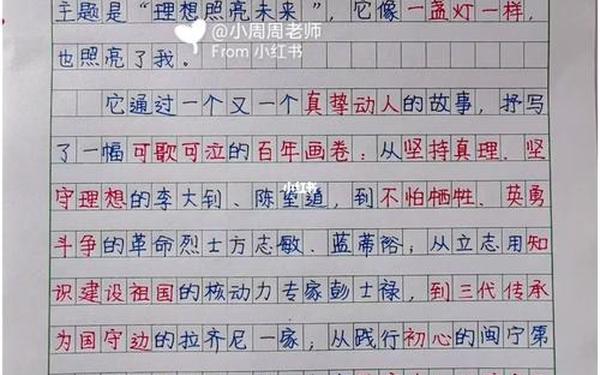 主题是“理想照亮未来”，它像一盏灯一样，
@小周周老师
From 小红书
也照亮了我。
它通过一个又一个真挚动人的故事，抒写
了一幅可歌可泣的百年画卷：从坚持真理、坚
守理想的李大钊、陈望道，到不怕牺牲、英勇
小红书
斗争的革命烈士方志敏、蓝蒂裕；从立志用知
识建设祖国的核动力专家彭士禄，到三代传承
为国守边的拉齐尼一家；从践行初心的闽宁第